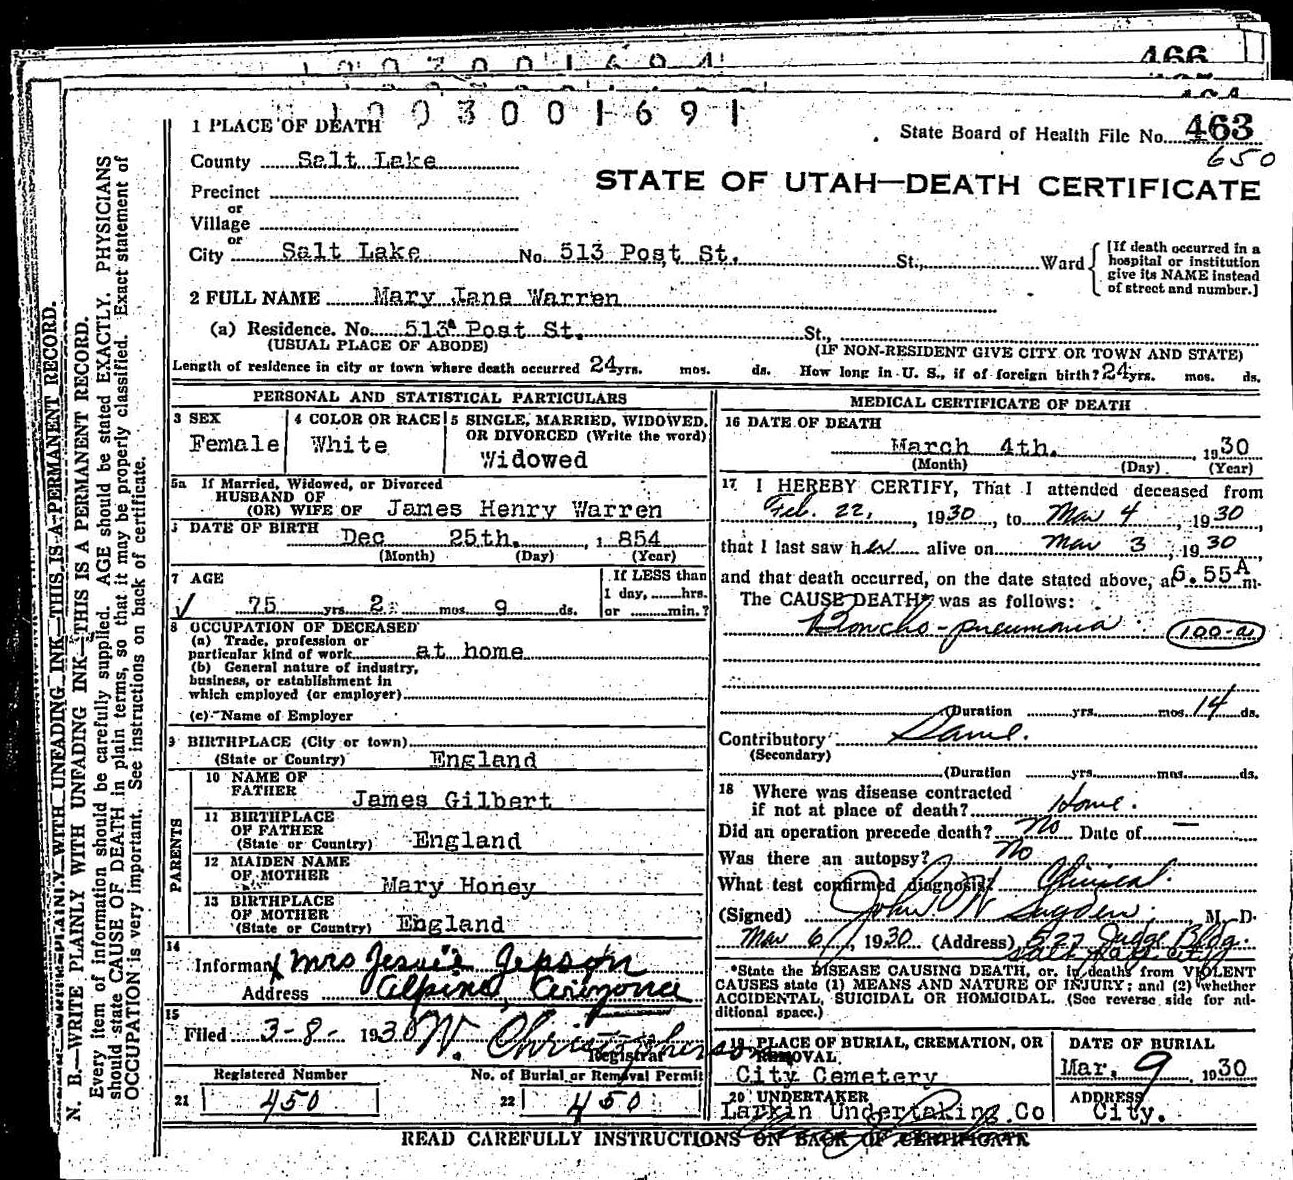 466
1003001691
1 PLACE OF DEATH
State Board of Health File No. 463
650
County Salt Lake
STATE OF UTAH—DEATH CERTIFICATE
Precinct
or
Village
or
City Salt Lake No. 513 Post St. St., Ward
[If death occurred in a
hospital or institution
give its NAME instead
of street and number.]
2 FULL NAME Mary Jane Warren
(a) Residence. No. 513 Post St. St.,
(USUAL PLACE OF ABODE) (IF NON-RESIDENT GIVE CITY OR TOWN AND STATE)
Length of residence in city or town where death occurred 24 yrs. mos. ds. How long in U. S., if of foreign birth? 24 yrs. mos. ds.
PERSONAL AND STATISTICAL PARTICULARS
3 SEX
Female
4 COLOR OR RACE
White
5 SINGLE, MARRIED, WIDOWED,
OR DIVORCED (Write the word)
Widowed
5a If Married, Widowed, or Divorced
HUSBAND OF
(OR) WIFE OF James Henry Warren
DATE OF BIRTH
Dec 25th. , 1854
(Month) (Day) (Year)
7 AGE
75 yrs 2 mos 9 ds.
If LESS than
1 day, hrs.
or min.?
8 OCCUPATION OF DECEASED
(a) Trade, profession or
particular kind of work at home
(b) General nature of industry,
business, or establishment in
which employed (or employer)
(c) Name of Employer
9 BIRTHPLACE (City or town)
(State or Country) England
PARENTS
10 NAME OF
FATHER
James Gilbert
11 BIRTHPLACE
OF FATHER
(State or Country) England
12 MAIDEN NAME
OF MOTHER
Mary Honey
13 BIRTHPLACE
OF MOTHER
(State or Country) England
14
Informant Mrs Jessie Jepson
Address Alpine, Arizona
15
Filed 3-8- 1930 W. Christopherson
Registrar
Registered Number No. of Burial or Removal Permit
21 450 22 450
MEDICAL CERTIFICATE OF DEATH
16 DATE OF DEATH
March 4th. , 1930
(Month) (Day) (Year)
17 I HEREBY CERTIFY, That I attended deceased from
Feb. 22, , 1930, to Mar 4 , 1930,
that I last saw her alive on Mar 3 , 1930,
and that death occurred, on the date stated above, at 6.55 A m.
The CAUSE DEATH* was as follows:
Broncho-pneumonia 100-a
(Duration yrs. mos 14 ds.
Contributory Same.
(Secondary)
(Duration yrs. mos. ds.
18 Where was disease contracted
if not at place of death? Home.
Did an operation precede death? No Date of —
Was there an autopsy? No
What test confirmed diagnosis? Clinical.
(Signed) John W Sugden, M. D.
Mar 6, 1930 (Address) 527 Judge Bldg.
Salt Lake City
*State the DISEASE CAUSING DEATH, or, in deaths from VIOLENT
CAUSES state (1) MEANS AND NATURE OF INJURY; and (2) whether
ACCIDENTAL, SUICIDAL OR HOMICIDAL. (See reverse side for ad-
ditional space.)
19 PLACE OF BURIAL, CREMATION, OR
REMOVAL.
City Cemetery
DATE OF BURIAL
Mar. 9 1930
20 UNDERTAKER
Larkin Undertaking Co
ADDRESS
City.
READ CAREFULLY INSTRUCTIONS ON BACK OF CERTIFICATE
N. B.—WRITE PLAINLY WITH UNFADING INK—THIS IS A PERMANENT RECORD.
Every item of information should be carefully supplied. AGE should be stated EXACTLY. PHYSICIANS
should state CAUSE OF DEATH in plain terms, so that it may be properly classified. Exact statement of
OCCUPATION is very important. See instructions on back of certificate.